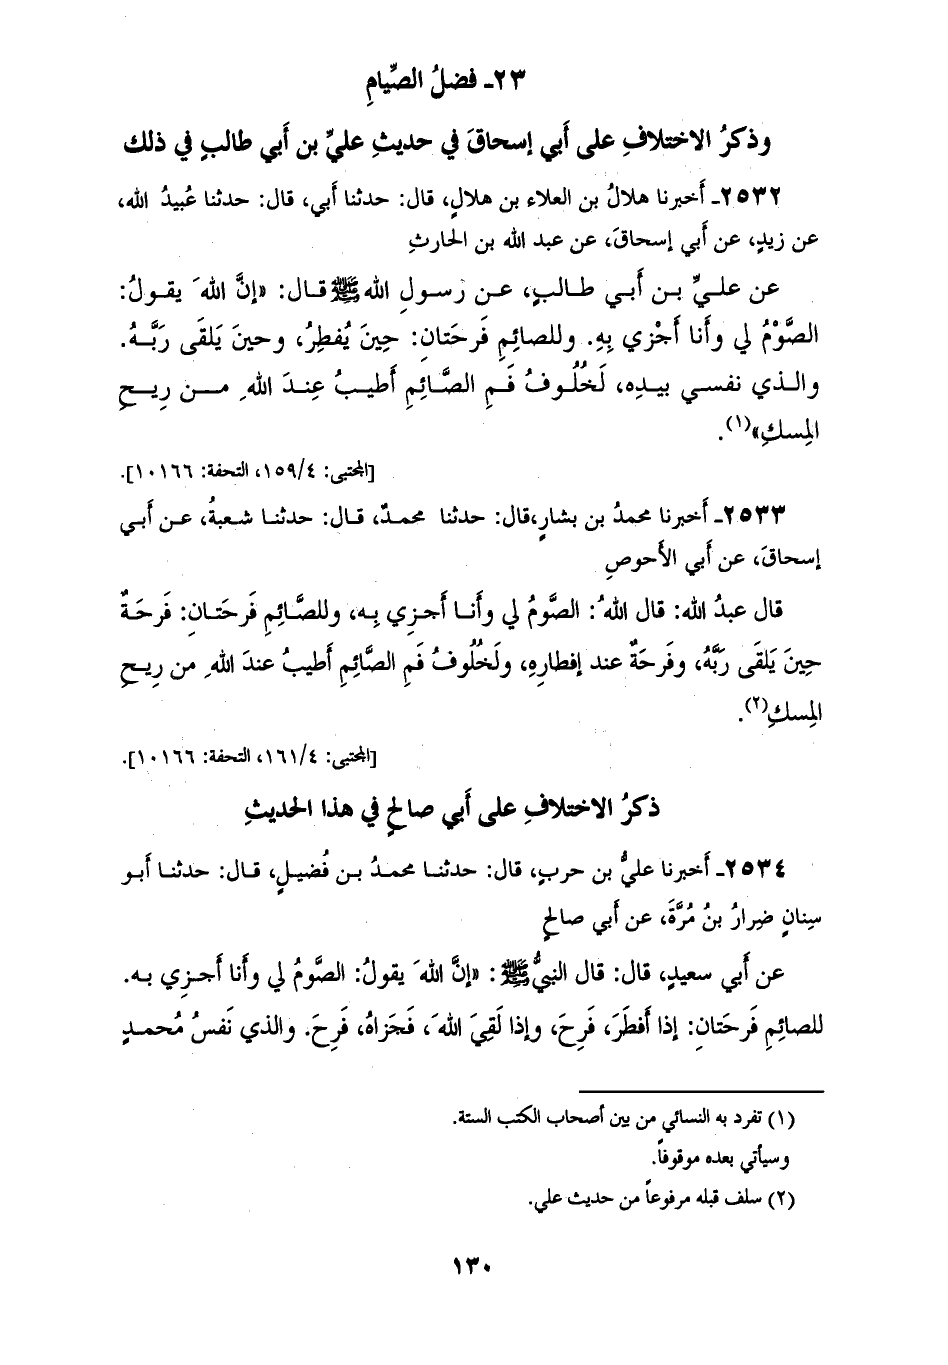 ٢٣ـ فضلُ الصِّيامِ
وذكرُ الاختلافِ على أَبي إسحاقَ في حديثِ عليِّ بن أَبي طالبٍ في ذلك
٢٥٣٢ـ أَخبرنا هلالُ بن العلاء بن هلالٍ، قال: حدثنا أَبي، قال: حدثنا عُبيدُ الله،
عن زيدٍ، عن أَبي إسحاقَ، عن عبد الله بن الحارثِ
عن عليِّ بن أَبي طالبٍ، عن رَسولِ الله ﷺ قال: «إنَّ اللهَ يقولُ:
الصَّوْمُ لي وأَنا أَجْزي بِهِ. وللصائِمِ فَرحَتانِ: حِينَ يُفطِرُ، وحينَ يَلقَى رَبَّهُ.
والذي نفسي بيدِه، لَخُلُوفُ فَمِ الصَّائِمِ أَطيبُ عِندَ اللهِ من رِيحِ
المِسكِ»(١).
[المجتبى: ١٥٩/٤، التحفة: ١٠١٦٦].
٢٥٣٣ـ أَخبرنا محمدُ بن بشارٍ،قال: حدثنا محمدٌ، قال: حدثنا شعبةُ، عن أَبي
إسحاقَ، عن أَبي الأَحوصِ
قال عبدُ الله: قال اللهُ: الصَّومُ لي وأَنا أَجزِي بِه، وللصَّائِمِ فَرحَتانِ: فَرحَةٌ
حِينَ يَلقَى رَبَّهُ، وفَرحَةٌ عند إفطارِهِ، ولَخُلُوفُ فَمِ الصَّائِمِ أَطيبُ عندَ اللهِ من رِيحِ
المِسكِ(٢).
[المجتبى: ١٦١/٤، التحفة: ١٠١٦٦].
ذكرُ الاختلافِ على أَبي صالحٍ في هذا الحديثِ
٢٥٣٤ـ أَخبرنا عليُّ بن حربٍ، قال: حدثنا محمدُ بن فُضيلٍ، قال: حدثنا أَبو
سِنانٍ ضِرارُ بنُ مُرَّةَ، عن أَبي صالحٍ
عن أَبي سعيدٍ، قال: قال النبيُّ ﷺ: «إنَّ اللهَ يقولُ: الصَّومُ لي وأَنا أَجزِي به.
للصائِمِ فَرحَتانِ: إذا أَفطَرَ، فَرِحَ، وإذا لَقِيَ اللهَ، فَجَزاهُ، فَرِحَ. والذي نَفسُ مُحمدٍ
(١) تفرد به النسائي من بين أصحاب الكتب الستة.
وسيأتي بعده موقوفاً.
(٢) سلف قبله مرفوعاً من حديث علي.
١٣٠